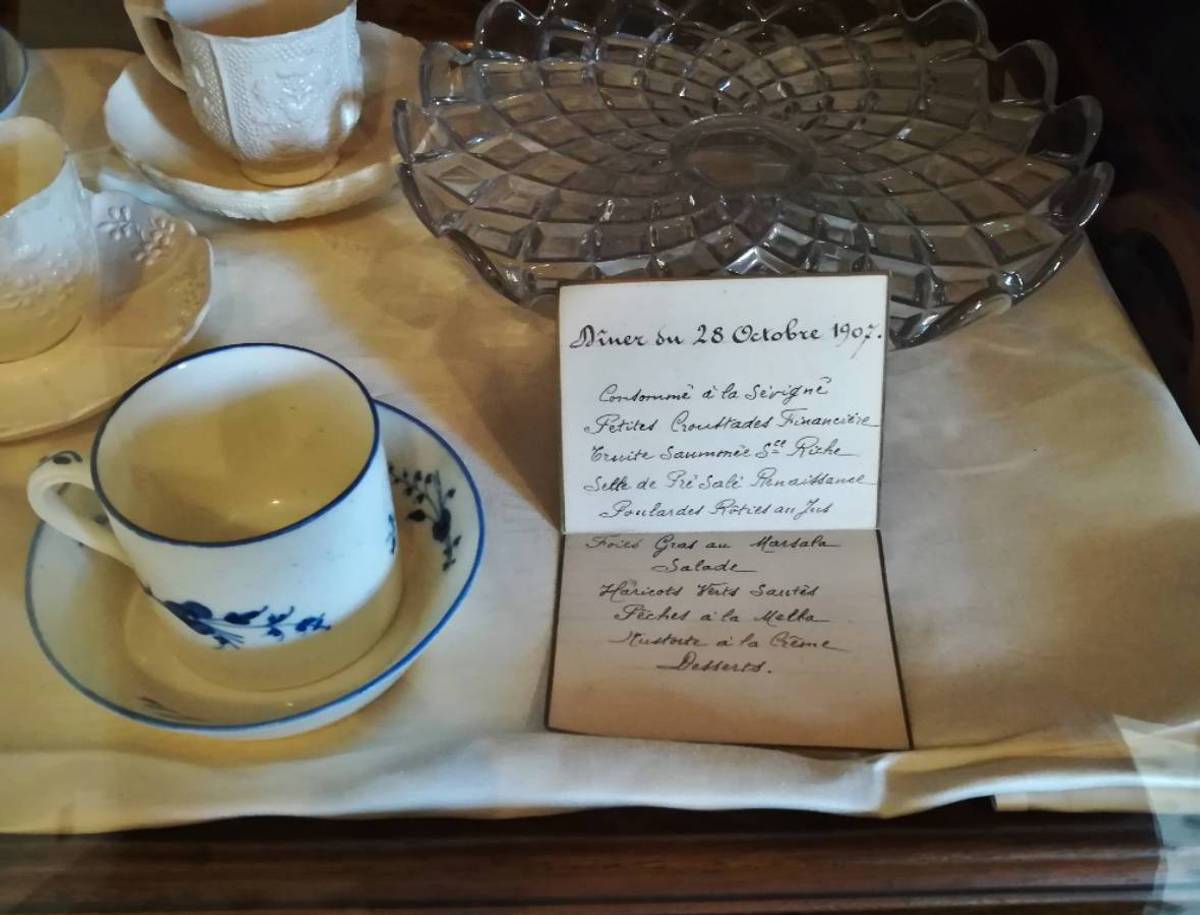 Dîner du 28 Octobre 1907.
Consommé à la Sévigné
Petites Croustades Financière
Truite Saumonée Sce Riche
Selle de Pré Salé Renaissance
Poulardes Rôties au Jus
Foies Gras au Marsala
Salade
Haricots Verts Sautés
Pêches à la Melba
à la Crème
Desserts.